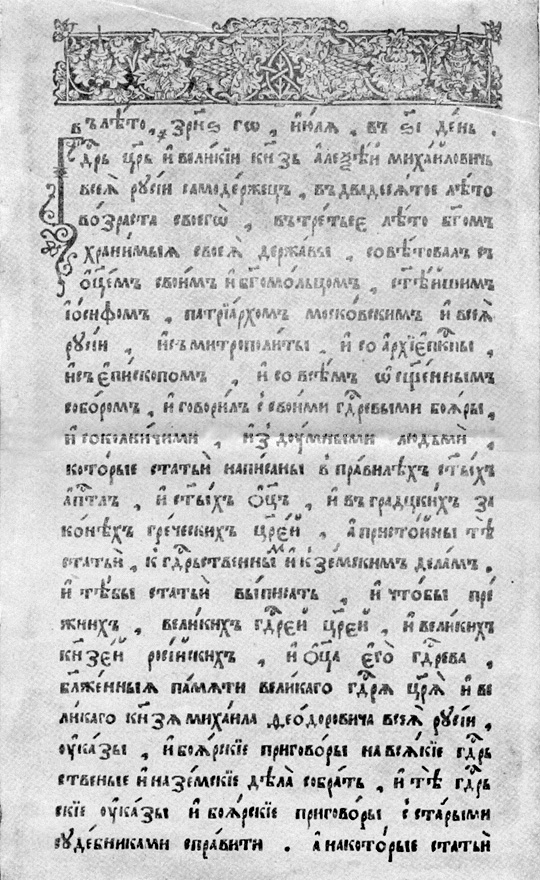 въ лѣто, ҂зрн҃ѕ гѡ, і҆ю́лѧ, въ ѕ҃і де́нь.
Гдⷭ҇рь цр҃ь и҆ вели́кїи кн҃зь а҆леѯѣ́й миха́йловичь
всеѧ̀ рꙋсі́и самоде́ржецъ, въ двадесѧ́тое лѣ́то
во́зраста своегѡ̀, въ тре́тьее лѣ́то бг҃омъ
храни́мыѧ своеѧ̀ держа́вы, совѣ́товалъ съ
ѻ҆ц҃е́мъ свои́мъ и҆ бг҃омо́льцомъ, ст҃ѣ́йшимъ
і҆ѡ́сифомъ, патрїа́рхомъ моско́вскимъ и҆ всеѧ̀
рꙋсі́и, и҆ съ митрополи́ты, и҆ со а҆рхїепⷭ҇кпы,
и҆ съ є҆пи́скопомъ, и҆ со всѣ́мъ ѡ҆сщ҃е́ннымъ
собо́ромъ, и҆ говори́лъ с̾ свои́ми гдⷭ҇ревыми боѧ́ры,
и҆ соколни́чими, и҆ з̾ дꙋ́мными людьмѝ,
кото́рые статьѝ напи́саны в̾ пра́вилѣхъ ст҃ы́хъ
а҆пⷭ҇тлъ, и҆ ст҃ы́хъ ѻ҆ц҃ъ, и҆ въ градцкихъ за
ко́нѣхъ гре́ческихъ цр҃е́й, а҆ присто́йны тѣ̀
статьѝ, к̾ гдⷭ҇рьственнымъ и҆ к̾ зе́мскимъ дѣла́мъ.
и҆ тѣ́бы статьѝ вы́писать, и҆ что́бы пре́
жнихъ, вели́кихъ гдⷭ҇ре́й цр҃е́й, и҆ вели́кихъ
кн҃зе́й росі́йскихъ, и҆ ѻ҆ц҃а̀ є҆гѡ̀ гдⷭ҇рева,
бл҃же́нныѧ па́мѧти вели́каго гдⷭ҇рѧ цр҃ѧ̀ и҆ ве
ли́каго кн҃зѧ миха́ила ѳео́доровича всеѧ̀ рꙋсі́и,
ᲂу҆ка́зы, и҆ боѧ́рскїе пригово́ры на всѧ́кїе гдⷭ҇рь
ственые и҆ на зе́мскїе дѣла̀ собра́ть, и҆ тѣ̀ гдⷭ҇рь
скїе ᲂу҆ка́зы и҆ боѧ́рскїе пригово́ры с̾ ста́рыми
сꙋде́бниками спра́вити. а҆ на кото́рые статьѝ